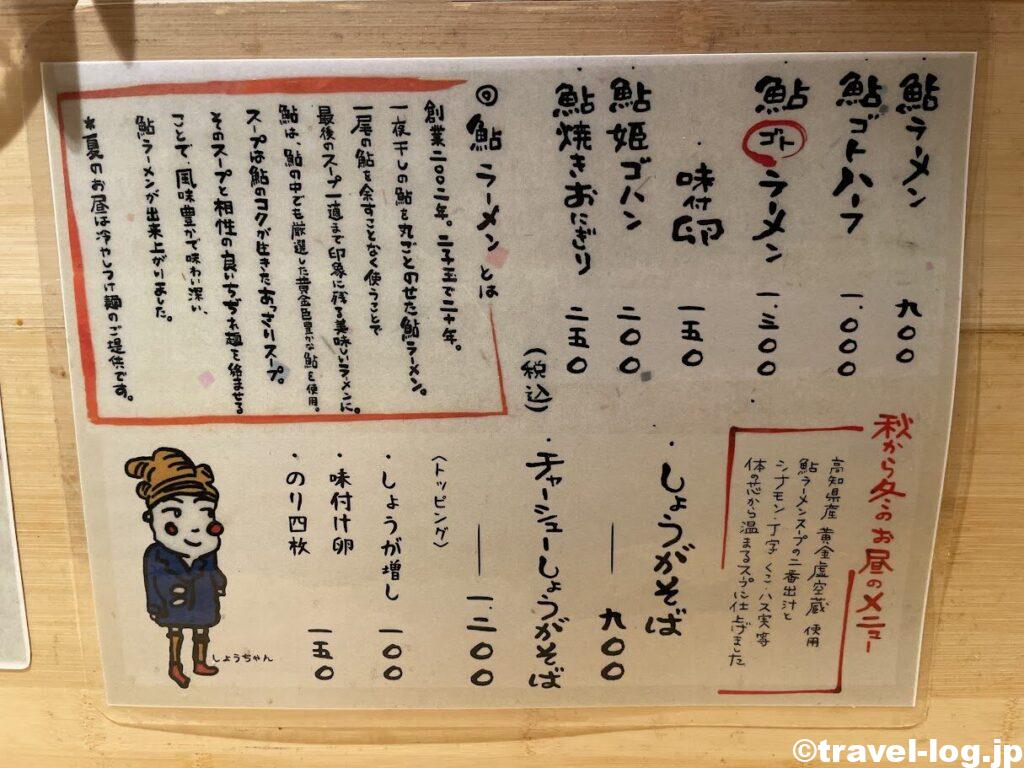 鮎ラーメン 九〇〇
鮎ゴトハーフ 一、〇〇〇
鮎ゴトラーメン 一、三〇〇
味付卵 一五〇
鮎姫ゴハン 二〇〇
鮎焼きおにぎり 二五〇
(税込)
◎鮎ラーメンとは
創業二〇〇二年。二子玉で二十年。
一夜干しの鮎を丸ごとのせた鮎ラーメン。
一尾の鮎を余すことなく使うことで
最後のスープ一適まで印象に残る美味しいラーメンに。
鮎は、鮎の中でも厳選した黄金色豊かな鮎を使用。
スープは鮎のコクが生きたあっさりスープ。
そのスープと相性の良いちぢれ麺を絡ませる
ことで、風味豊かで味わい深い、
鮎ラーメンが出来上がりました。
*夏のお昼は冷やしつけ麺のご提供です。
秋から冬のお昼のメニュー
高知県産 黄金虚空蔵 使用
鮎ラーメンスープの二番出汁と
シナモン・丁字 くこ・ハス実等
体の芯から温まるスープに仕上げました
・しょうがそば
― 九〇〇
・チャーシューしょうがそば
― 一、二〇〇
〈トッピング〉
・しょうが増し 一〇〇
・味付け卵 一五〇
・のり四枚
しょうちゃん
©travel-log.jp